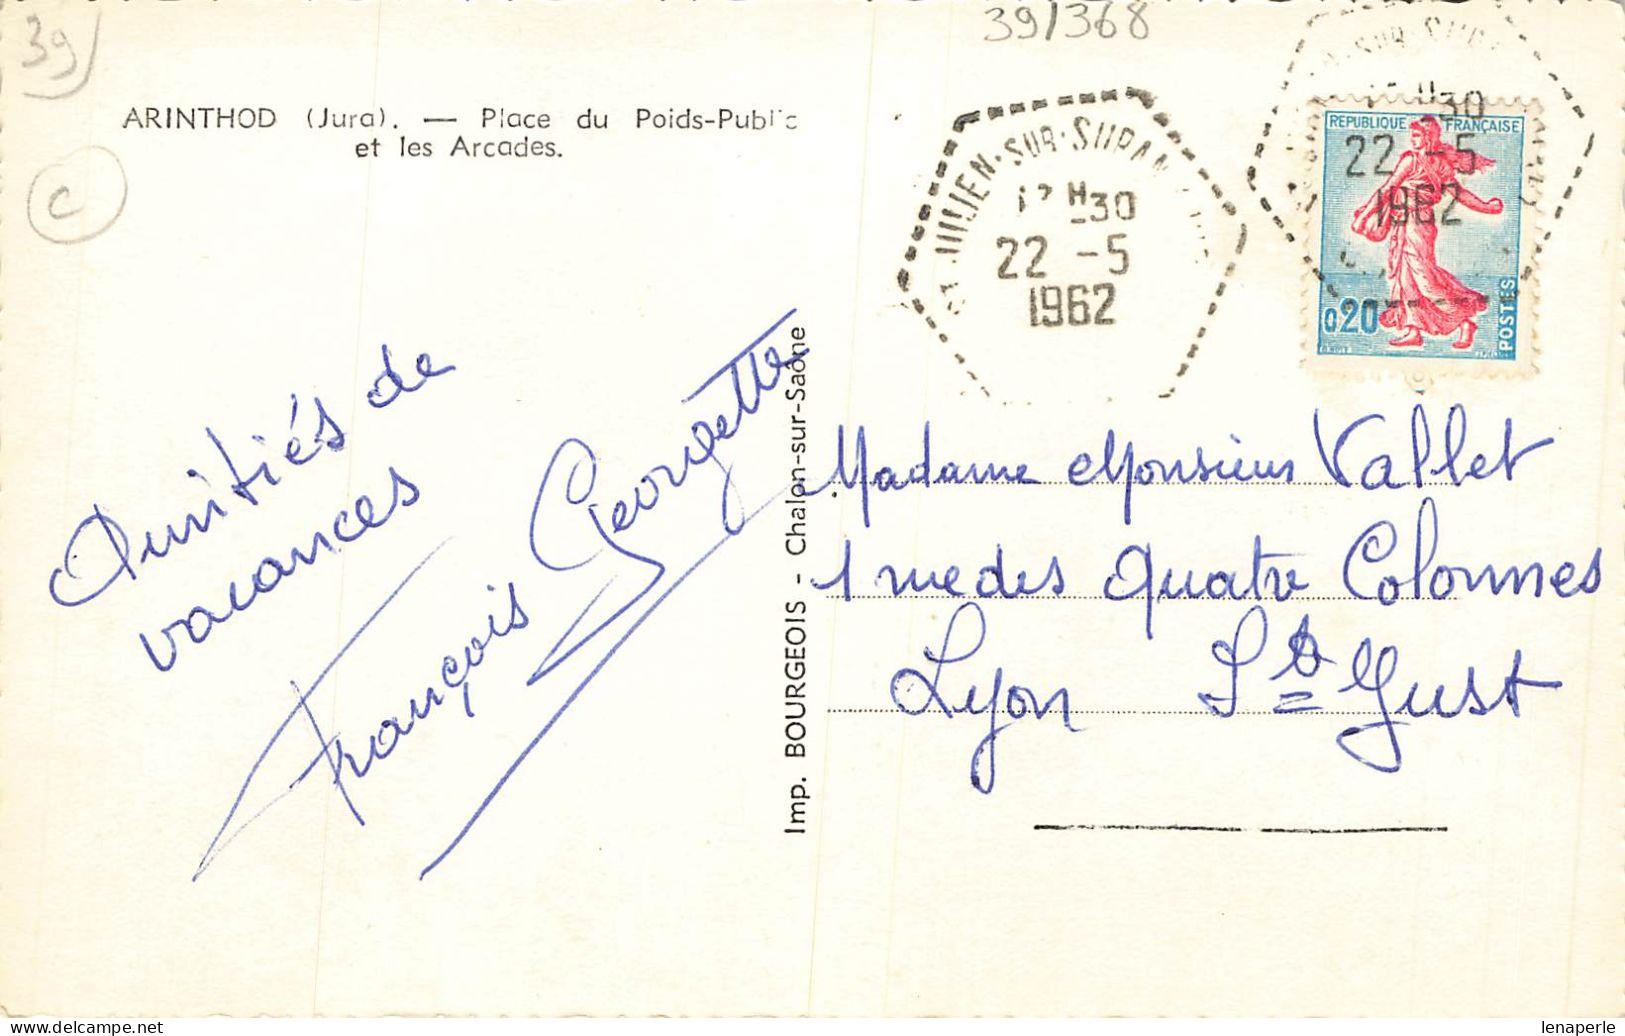 39
39/368
ARINTHOD (Jura). — Place du Poids-Public
et les Arcades.
C
ST JULIEN-SUR-SURAN
12 H30
22 -5
1962
30
22 -5
1962
REPUBLIQUE FRANÇAISE
0,20
POSTES
Amitiés de
vacances
François Georgette
Imp. BOURGEOIS - Chalon-sur-Saône
Madame Monsieur Vallet
1 rue des Quatre Colonnes
Lyon St Just
lenaperle